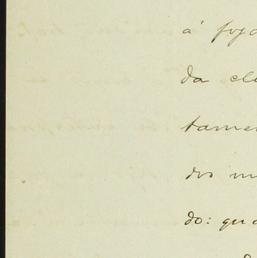 á fog
da cl
tamen
dos m
do: qua